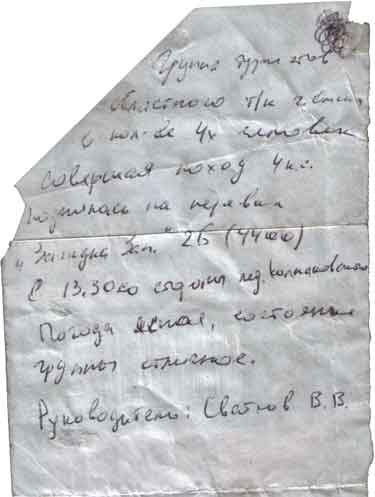 Группа туристов
областного т/к г.
в кол-ве 4х человек
совершая поход 4 к.с.
поднялась на перевал
"Звездна Зап." 2Б (4400)
в 13.30 со стороны лед. Колпаковского
Погода ясная, состояние
группы отличное.
Руководитель: Сватков В.В.